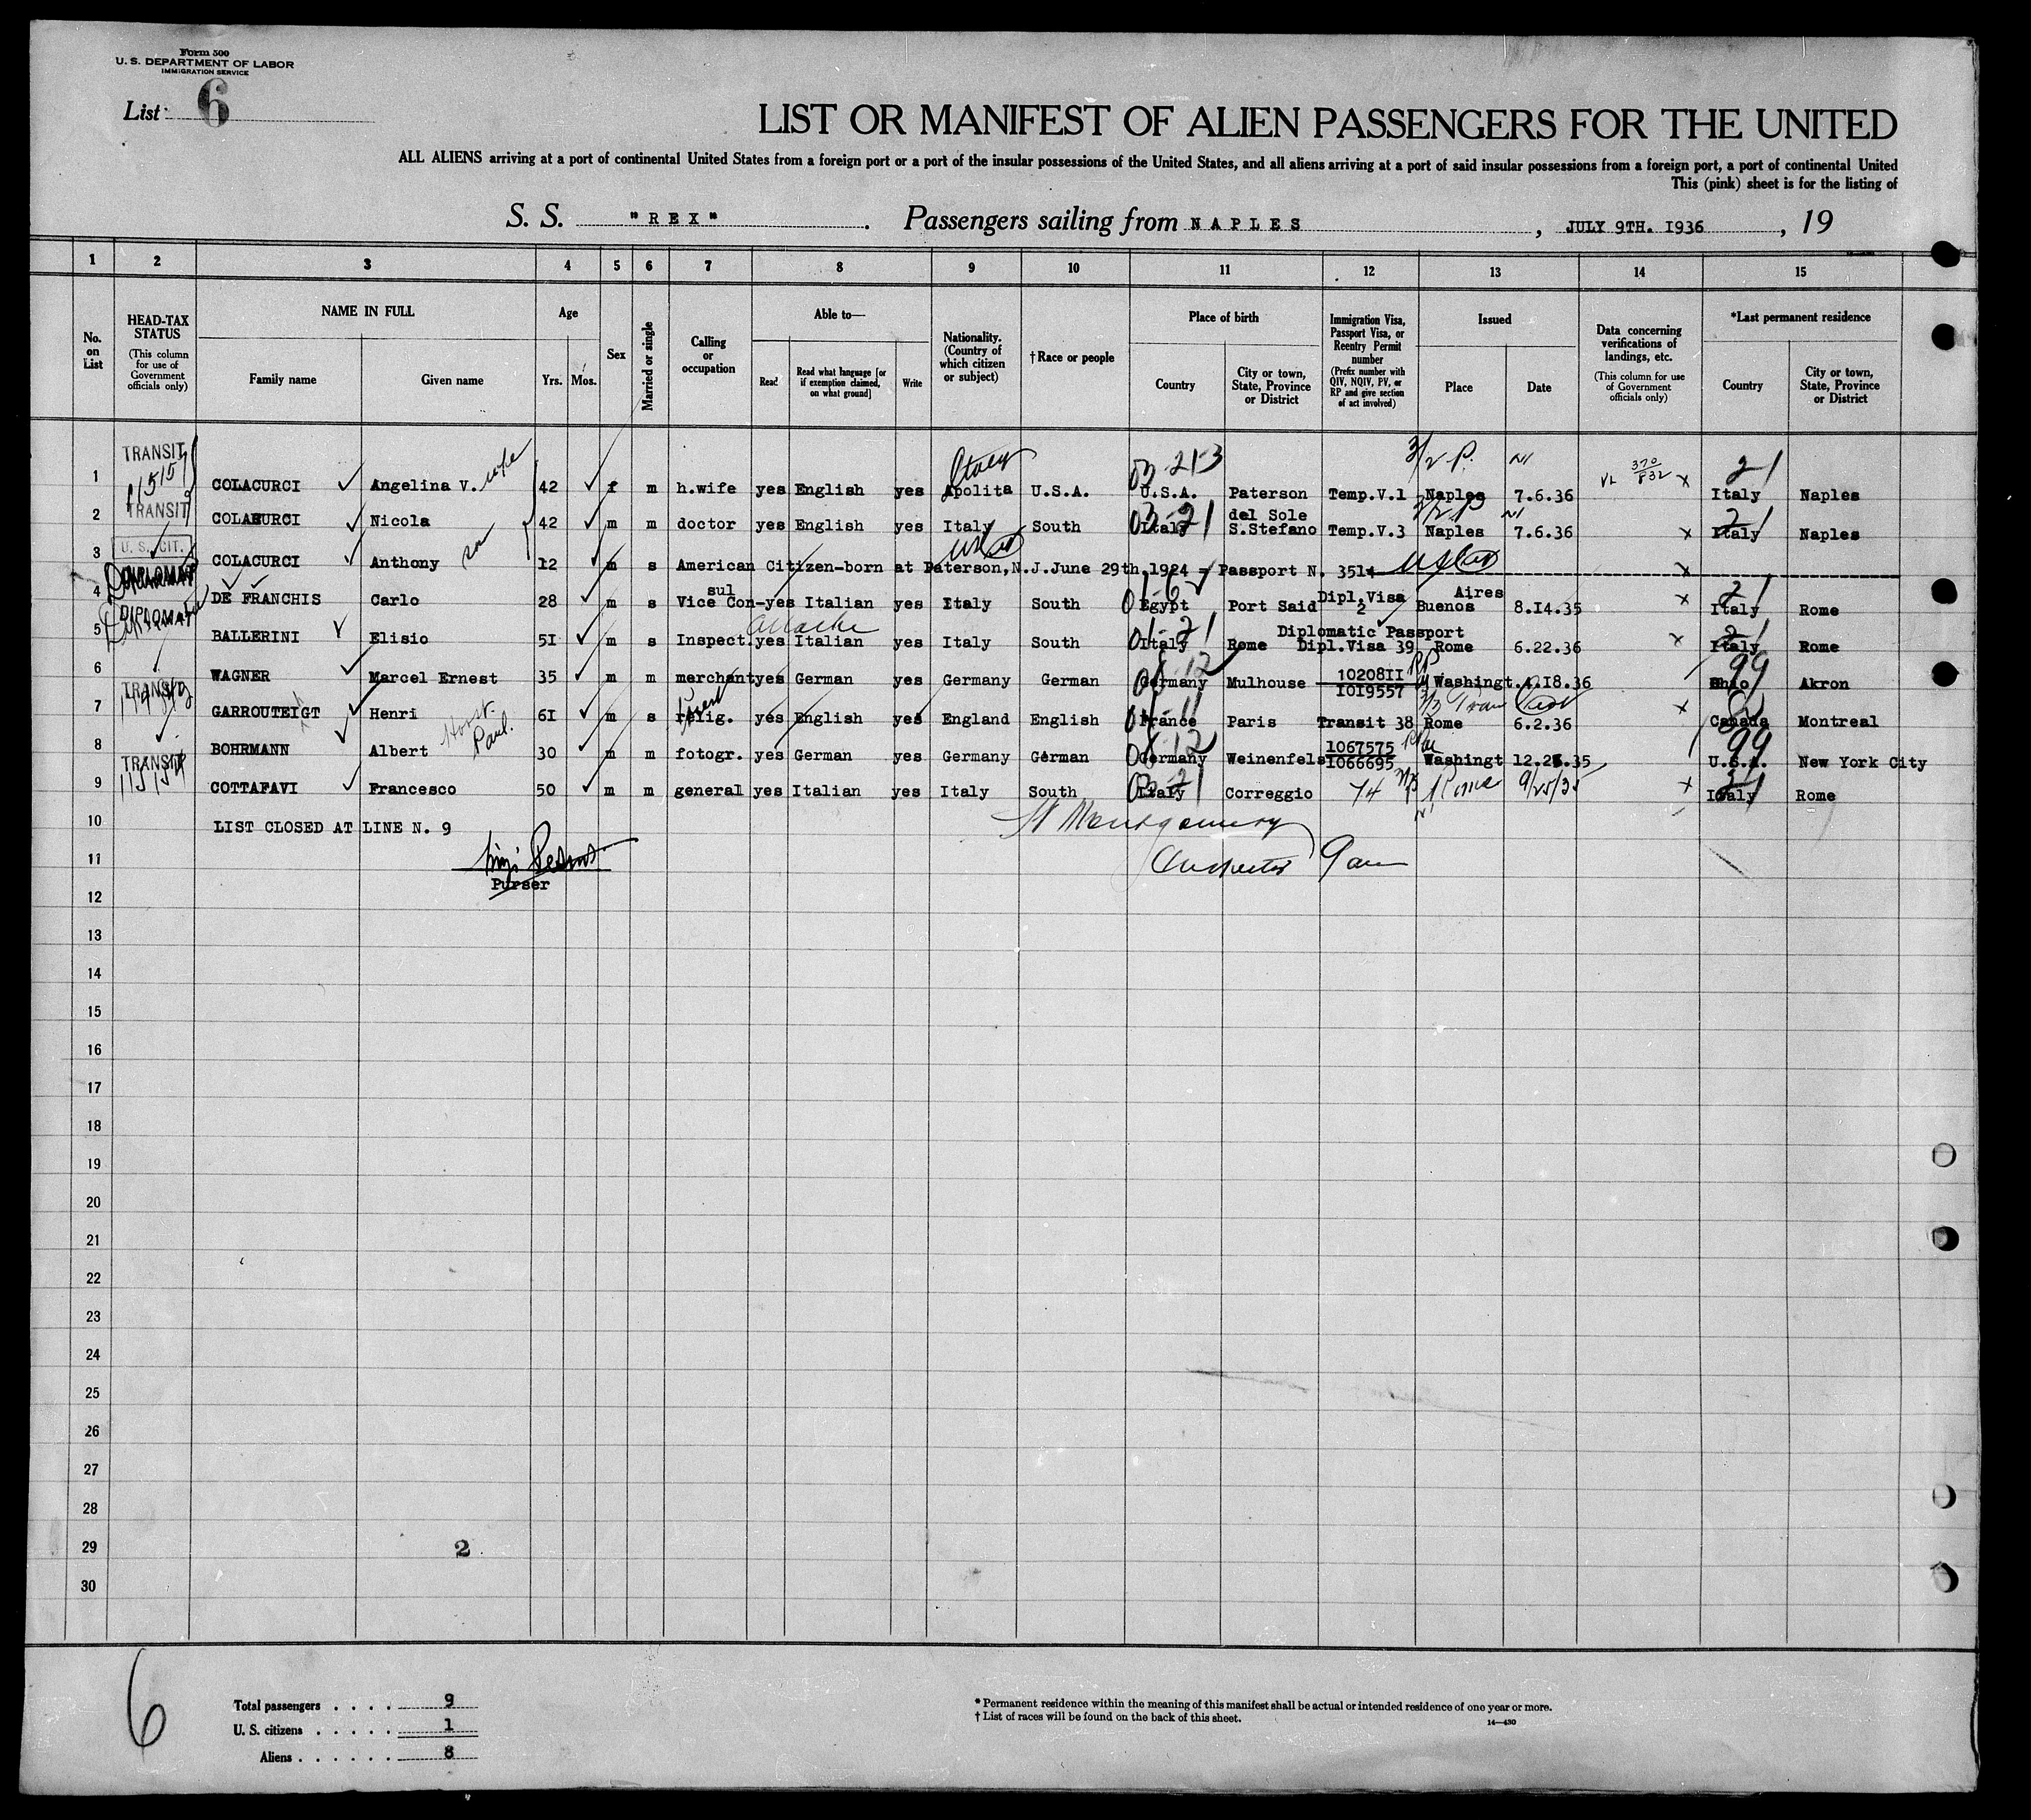 Form 500
U. S. DEPARTMENT OF LABOR
IMMIGRATION SERVICE
List 6
LIST OR MANIFEST OF ALIEN PASSENGERS FOR THE UNITED
ALL ALIENS arriving at a port of continental United States from a foreign port or a port of the insular possessions of the United States, and all aliens arriving at a port of said insular possessions from a foreign port, a port of continental United
This (pink) sheet is for the listing of
S. S. "REX". Passengers sailing from NAPLES, JULY 9TH. 1936, 19
1 2 3 4 5 6 7 8 9 10 11 12 13 14 15
No. on List
HEAD-TAX STATUS (This column for use of Government officials only)
NAME IN FULL
Family name Given name
Age
Yrs. Mos.
Sex
Married or single
Calling or occupation
Able to—
Read Read what language [or if exemption claimed, on what ground] Write
Nationality. (Country of which citizen or subject)
† Race or people
Place of birth
Country City or town, State, Province or District
Immigration Visa, Passport Visa, or Reentry Permit number (Prefix number with QIV, NQIV, PV, or RP and give section of act involved)
Issued
Place Date
Data concerning verifications of landings, etc. (This column for use of Government officials only)
*Last permanent residence
Country City or town, State, Province or District
TRANSIT Italy 03-213 3/2 P. 370/832 21
1 COLACURCI Angelina V. wife 42 f m h.wife yes English yes Apolita U.S.A. U.S.A. Paterson Temp.V.1 Naples 7.6.36 x Italy Naples
TRANSIT 03-21 21
2 COLACURCI Nicola 42 m m doctor yes English yes Italy South Italy del Sole S.Stefano Temp.V.3 Naples 7.6.36 x Italy Naples
U. S. CIT.
3 COLACURCI Anthony son 12 m s American Citizen-born at Paterson,N.J.June 29th.1924 - Passport N. 3514 x
DIPLOMAT 21
4 DE FRANCHIS Carlo 28 m s Vice Con-sul yes Italian yes Italy South Egypt Port Said Dipl.Visa 2 Buenos Aires 8.14.35 x Italy Rome
DIPLOMAT attache 01-21 Diplomatic Passport 21
5 BALLERINI Elisio 51 m s Inspect. yes Italian yes Italy South Italy Rome Dipl.Visa 39 Rome 6.22.36 x Italy Rome
6 WAGNER Marcel Ernest 35 m m merchant yes German yes Germany German Germany Mulhouse 1020811 1019557 RP Washingt. 4.18.36 99 Ohio Akron
TRANSIT
7 GARROUTEIGT Henri 61 m s relig. yes English yes England English France Paris Transit 38 Rome 6.2.36 x Canada Montreal
Horst Paul.
8 BOHRMANN Albert 30 m m fotogr. yes German yes Germany German Germany Weinenfels 1067575 1066695 Washingt 12.2 .35 99 U.S.A. New York City
TRANSIT
9 COTTAFAVI Francesco 50 m m general yes Italian yes Italy South Italy Correggio 74 Rome 9/25/35 x Italy Rome
10 LIST CLOSED AT LINE N. 9 Montgomery
11 Inspector
Purser
12
13
14
15
16
17
18
19
20
21
22
23
24
25
26
27
28
29 2
30
6
Total passengers . . . . 9
U. S. citizens . . . . . 1
Aliens . . . . . . 8
* Permanent residence within the meaning of this manifest shall be actual or intended residence of one year or more.
† List of races will be found on the back of this sheet.
14—430